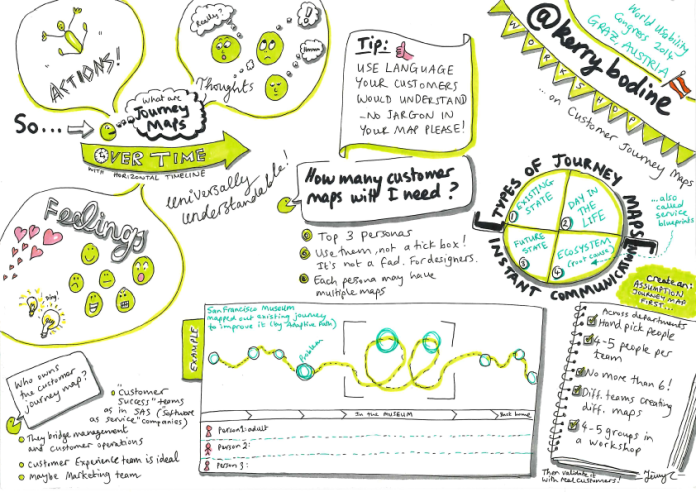 ACTIONS!
Really?
!?
Hmmm
Thoughts
So...
What are
Journey
Maps
OVER TIME
WITH HORIZONTAL TIMELINE
Universally
understandable!
Tip:
USE LANGUAGE
YOUR CUSTOMERS
WOULD UNDERSTAND
-NO JARGON IN
YOUR MAP PLEASE!
World Usability
Congress 2014
GRAZ AUSTRIA
@kerry bodine
WORKSHOP
...on Customer Journey Maps
Feelings
Ping!
How many customer
maps will I need?
Top 3 personas
Use them, not a tick box!
It's not a fad. For designers.
Each persona may have
multiple maps
TYPES OF JOURNEY MAPS
INSTANT COMMUNICATION
EXISTING
STATE
1
DAY IN
THE
LIFE
2
FUTURE
STATE
3
ECOSYSTEM
(root cause)
4
...also
called
service
blueprints
Create an:
ASSUMPTION
JOURNEY MAP
FIRST...
Across departments
Hand pick people
4-5 people per
team
No more than 6!
Diff. teams creating
diff. maps
4-5 groups in
a workshop
Then validate it
with real customers!
EXAMPLE
San Francisco Museum
mapped out existing journey
to improve it (by Adaptive Path)
Problem
In the MUSEUM
Back home
Person 1: adult
Person 2:
Person 3:
Who owns
the customer
journey map?
"Customer
success" teams
as in SAS (software
as service" companies)
They bridge management
and customer operations
Customer Experience team is ideal
maybe Marketing team